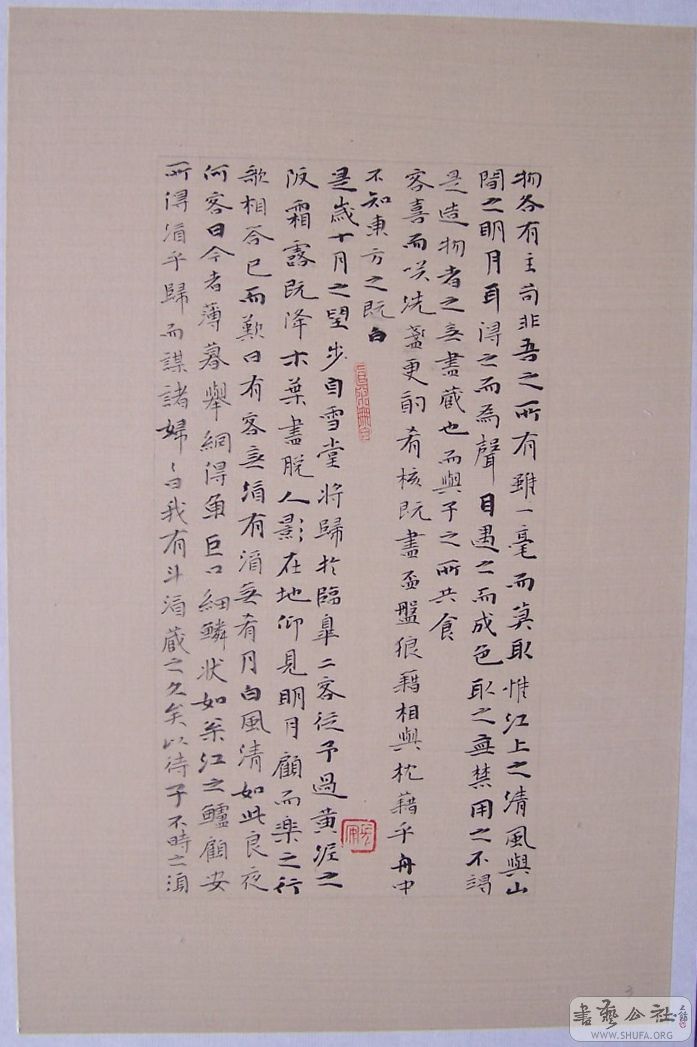 物各有主苟非吾之所有雖一毫而莫取惟江上之清風與山
間之明月耳得之而為聲目遇之而成色取之無禁用之不竭
是造物者之無盡藏也而與子之所共食
客喜而咲洗盞更酌肴核既盡盃盤狼藉相與枕藉乎舟中
不知東方之既白
是歲十月之望步自雪堂將歸於臨皐二客從予過黃泥之
阪霜露既降木葉盡脫人影在地仰見明月顧而樂之行
歌相答已而歎曰有客無酒有酒無肴月白風清如此良夜
何客曰今者薄暮舉網得魚巨口細鱗狀如松江之鱸顧安
所得酒乎歸而謀諸婦〻曰我有斗酒藏之久矣以待子不時之須
書藝公社
WWW.SHUFA.ORG